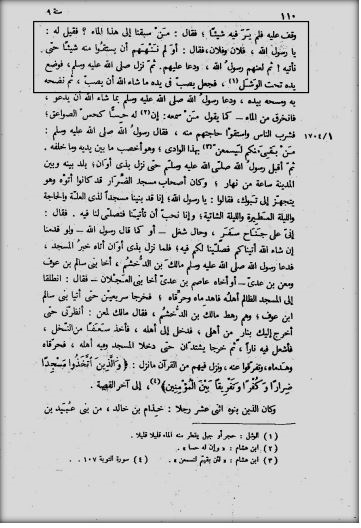 ١١٠
سنة ٩
وقف عليه فلم يَرَ فيه شيئًا ؛ فقال : مَنْ سبقنا إلى هذا الماء ؟ فقيل له :
يا رسول الله ، فلان وفلان، فقال : أو لم ننههم أن يستقوا منه شيئًا حتى
نأتيه ! ثم لعنهم رسولُ الله ، ودعا عليهم. ثم نزل صلى الله عليه وسلم، فوضع
يده تحت الوَشَل (١) ، فجعل يصبّ في يده ما شاء الله أن يصبّ ، ثم نضحه
به ومسحه بيده ، ودعا رسولُ الله صلى الله عليه وسلم بما شاء الله أن يدعو ،
فانخرق من الماء ـ كما يقول مَنْ سمعه : إن (٢) له حِسًّا كحس الصواعق ؛
فشرب الناس واستقوا حاجتهم منه ، فقال رسولُ الله صلى الله عليه وسلم :
١٧٠٤/١
مَنْ بقي منكم ليسمعنّ (٣) بهذا الوادي ؛ وهو أخصب ما بين يديه وما خلفه .
ثم أقبل رسولُ الله صلى الله عليه وسلم حتى نزل بذي أوان؛ بلد بينه وبين
المدينة ساعة من نهار ؛ وكان أصحاب مسجد الضرار قد كانوا أتوه وهو
يتجهز إلى تبوك، فقالوا : يا رسول الله؛ إنا قد بنينا مسجداً لذي العلّة والحاجة
والليلة المَطيرة والليلة الشاتية ؛ وإنا نحب أن تأتينا فتصلّي لنا فيه . فقال :
إنّي على جَناح سفر ، وحال شغل ـ أو كما قال رسول الله ـ ولو قدمنا
إن شاء الله أتيناكم فصلّينا لكم فيه؛ فلما نزل بذي أوان أتاه خبرُ المسجد ،
فدعا رسولُ الله صلى الله عليه وسلم مالك بن الدُّخشُم ، أخا بني سالم بن عوف
ومعن بن عديّ ـ أو أخاه عاصم بن عديّ أخا بني العَجْلان ـ فقال : انطلقا
إلى المسجد الظالم أهلُه فاهدماه وحرّقاه ؛ فخرجا سريعين حتى أتيا بني سالم
ابن عوف؛ وهم رهط مالك بن الدُّخشُم، فقال مالك لمعن : أنظرْني حتى
أخرج إليك بنار من أهلي ؛ فدخل إلى أهله ، فأخذ سَعَفًا من النخل ،
فأشعل فيه ناراً ، ثم خرجا يشتدّان حتى دخلا المسجد وفيه أهله ، فحرّقاه
وهدماه، وتفرّقوا عنه ، ونزل فيهم من القرآن ما نزل : ﴿ وَالَّذِينَ اتَّخَذُوا مَسْجِدًا
ضِرَارًا وَكُفْرًا وَتَفْرِيقًا بَيْنَ الْمُؤْمِنِينَ ﴾(٤) ، إلى آخر القصة .
وكان الذين بنوه اثني عشر رجلا : خِذام بن خالد ، من بني عُبيد بن
(١) الوشل : حجر أو جبل يقطر منه الماء قليلا قليلا .
(٢) ابن هشام : « وإن له حسا » .
(٣) ابن هشام : « لئن بقيتم لتسمعن » .
(٤) سورة التوبة ١٠٧ .